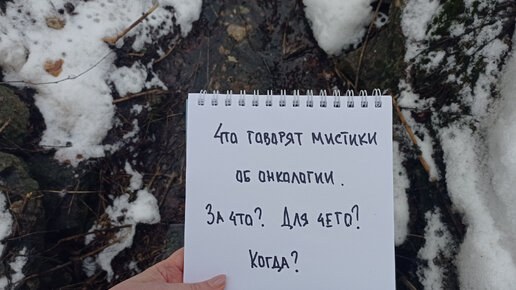 Что говорят мистики
об онкологии.
За что? Для чего?
Когда?